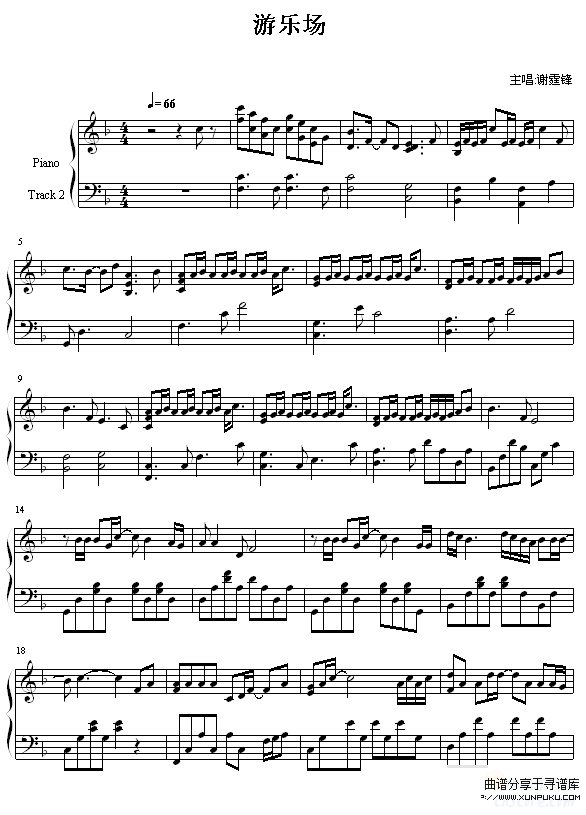 游乐场
主唱:谢霆锋
♩=66
Piano
Track 2
5
9
14
18
曲谱分享于寻谱库
?://WWW.XUNPUKU.COM